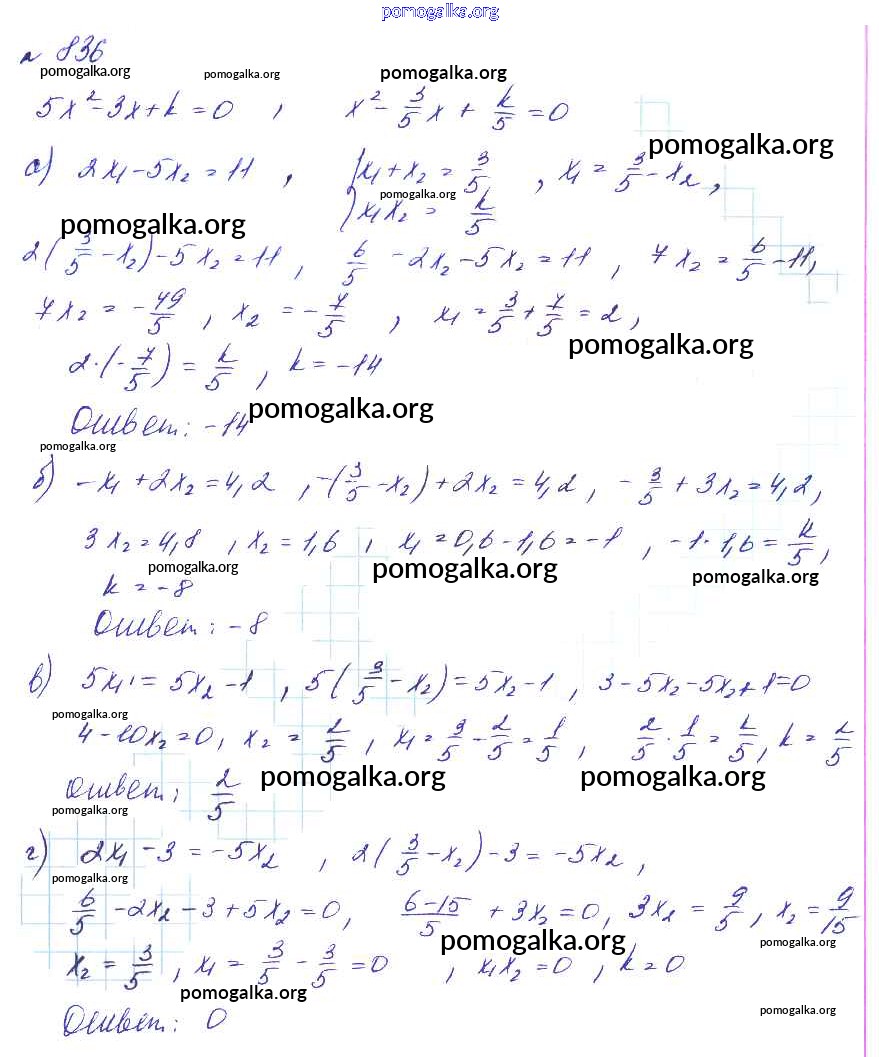 pomogalka.org
№ 836
pomogalka.org pomogalka.org pomogalka.org
5x² - 3x + k = 0 , x² - 3/5 x + k/5 = 0
pomogalka.org
а) 2x₁ - 5x₂ = 11 , { x₁ + x₂ = 3/5 , x₁ = 3/5 - x₂ ,
pomogalka.org
x₁x₂ = k/5
pomogalka.org
2(3/5 - x₂) - 5x₂ = 11 , 6/5 - 2x₂ - 5x₂ = 11 , 7x₂ = 6/5 - 11,
7x₂ = -49/5 , x₂ = -7/5 , x₁ = 3/5 + 7/5 = 2 ,
pomogalka.org
2·(-7/5) = k/5 , k = -14
Ответ: -14
pomogalka.org
pomogalka.org
б) -x₁ + 2x₂ = 4,2 , -(3/5 - x₂) + 2x₂ = 4,2 , -3/5 + 3x₂ = 4,2 ,
3x₂ = 4,8 , x₂ = 1,6 , x₁ = 0,6 - 1,6 = -1 , -1·1,6 = k/5 ,
pomogalka.org pomogalka.org pomogalka.org
k = -8
Ответ: -8
в) 5x₁ = 5x₂ - 1 , 5(3/5 - x₂) = 5x₂ - 1 , 3 - 5x₂ - 5x₂ + 1 = 0
pomogalka.org
4 - 10x₂ = 0, x₂ = 2/5 , x₁ = 3/5 - 2/5 = 1/5 , 2/5 · 1/5 = k/5 , k = 2/5
pomogalka.org pomogalka.org
Ответ: 2/5
pomogalka.org
г) 2x₁ - 3 = -5x₂ , 2(3/5 - x₂) - 3 = -5x₂ ,
pomogalka.org
6/5 - 2x₂ - 3 + 5x₂ = 0, (6-15)/5 + 3x₂ = 0, 3x₂ = 9/5 , x₂ = 9/15
pomogalka.org pomogalka.org
x₂ = 3/5 , x₁ = 3/5 - 3/5 = 0 , x₁x₂ = 0 , k = 0
pomogalka.org
pomogalka.org
Ответ: 0